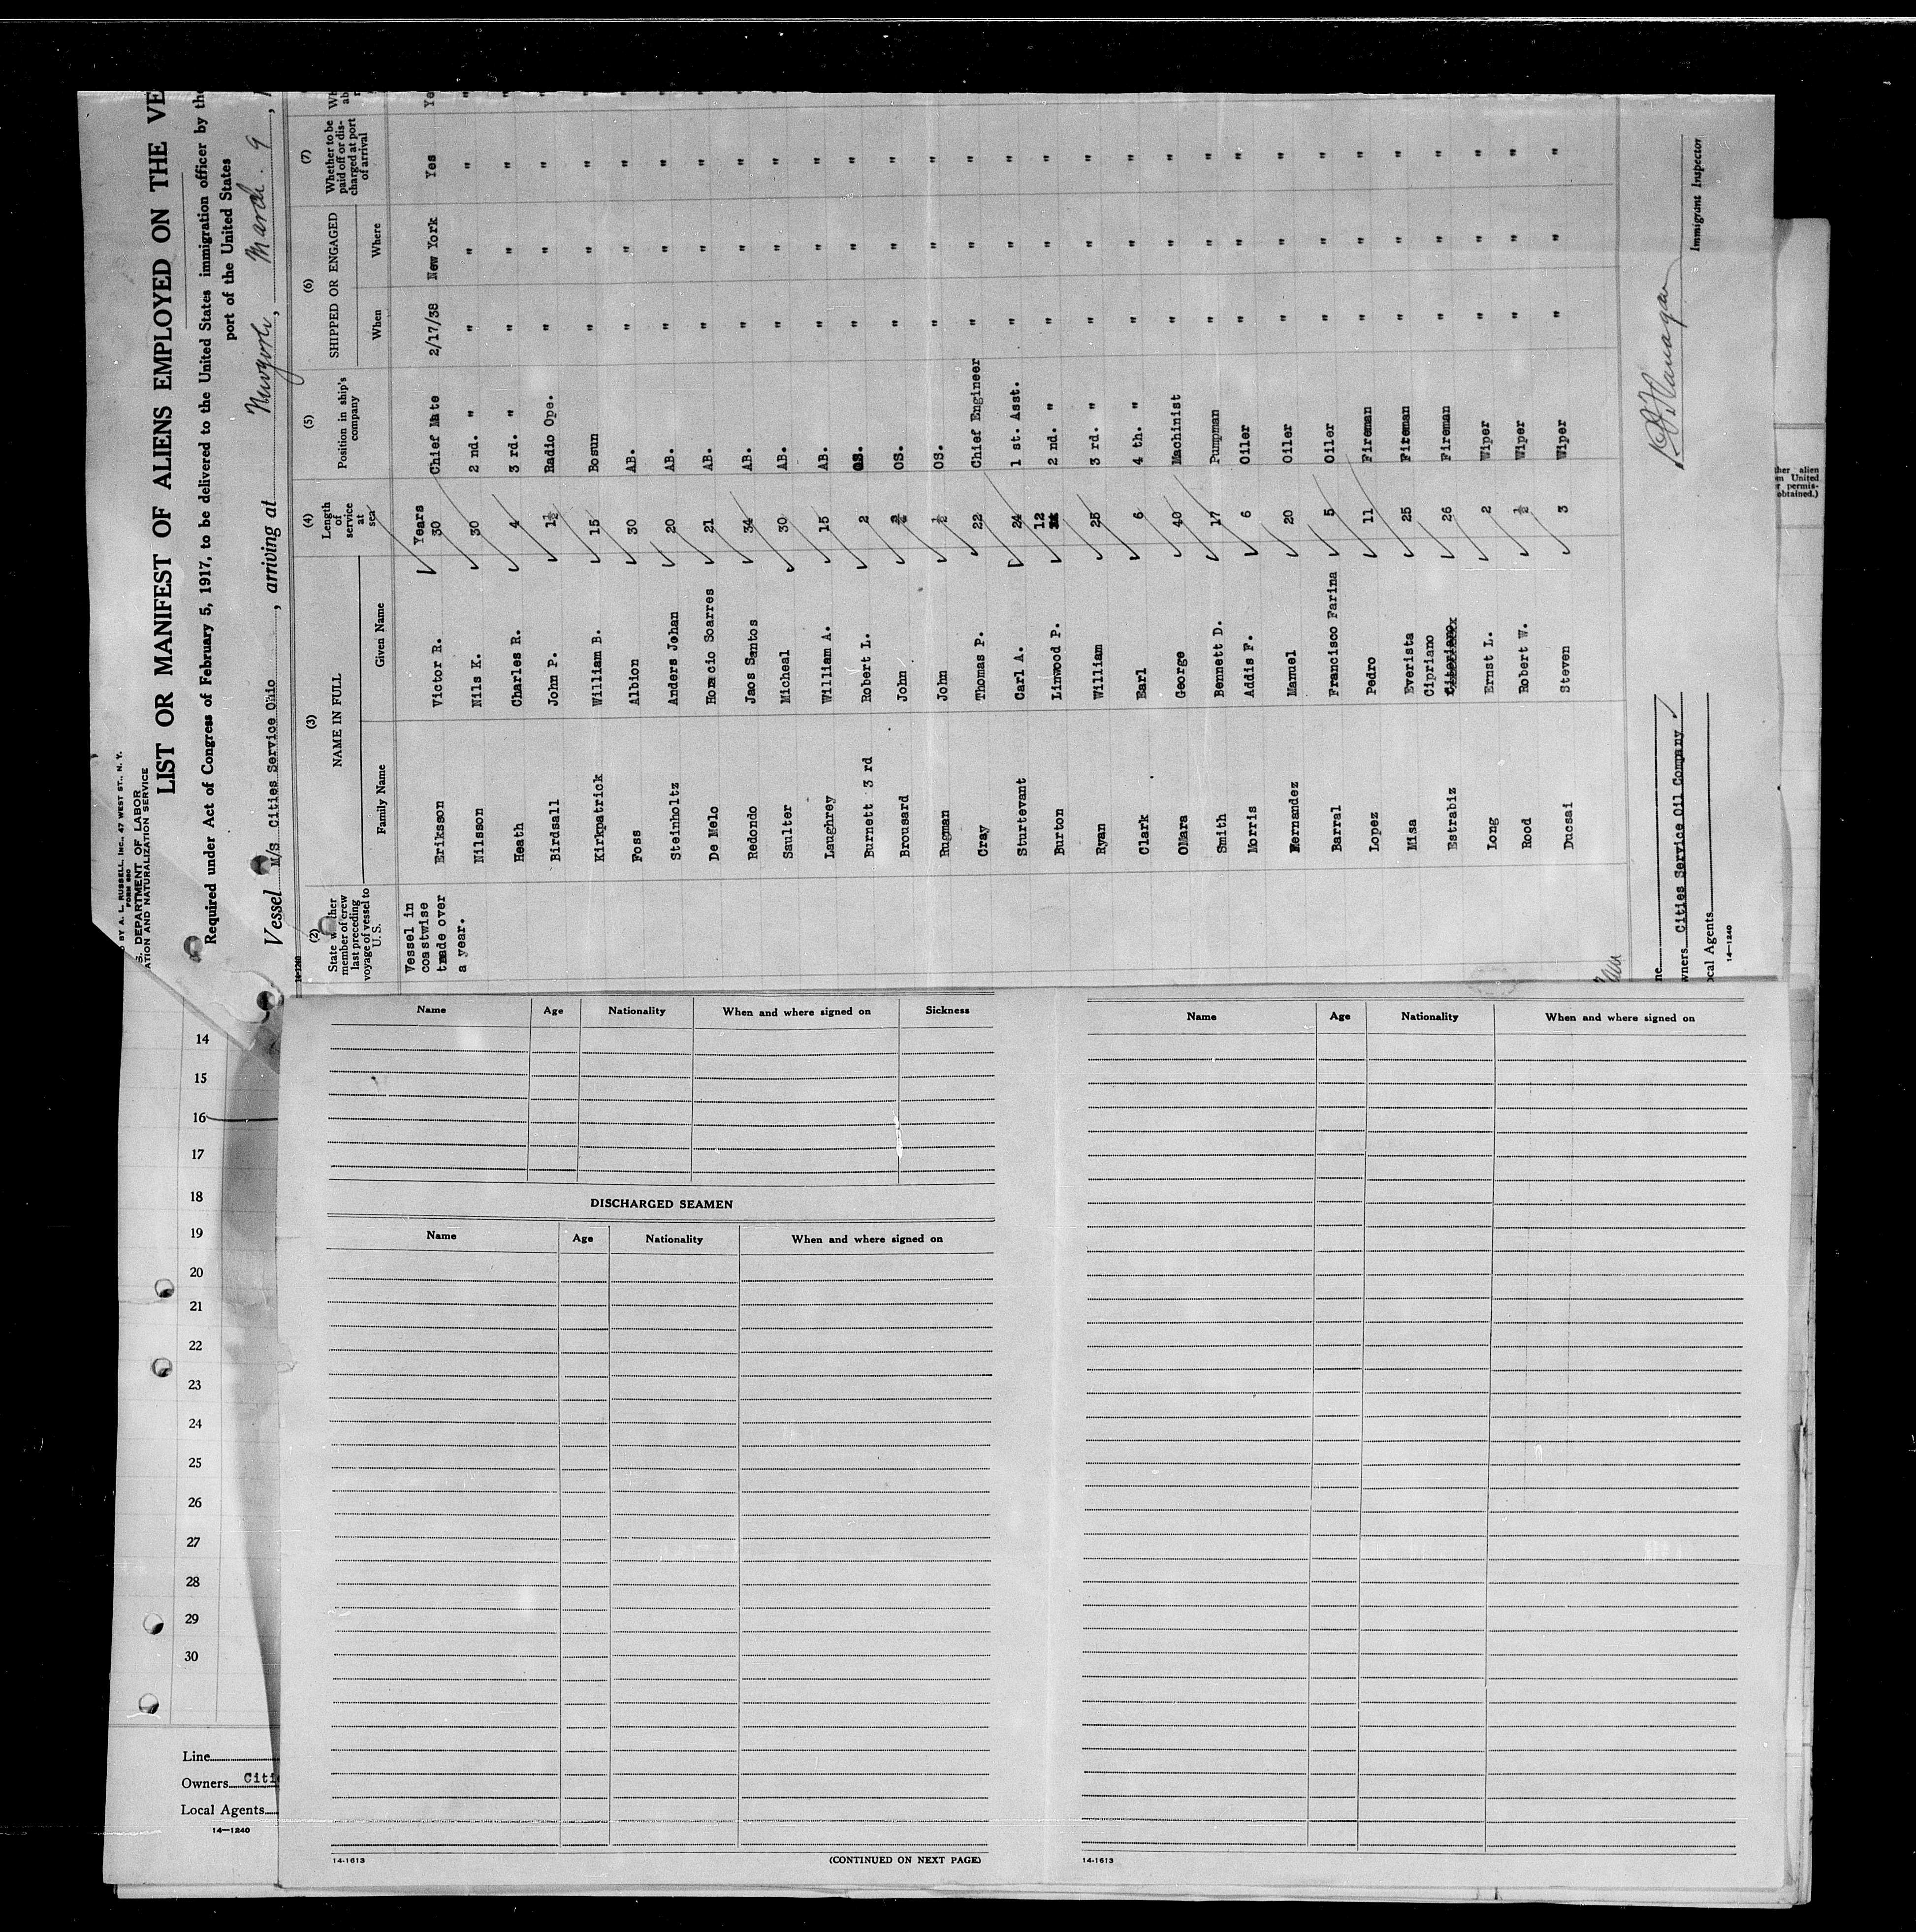 D BY A. L. RUSSELL, INC., 47 WEST ST., N. Y.
FORM 680
S. DEPARTMENT OF LABOR
ATION AND NATURALIZATION SERVICE
LIST OR MANIFEST OF ALIENS EMPLOYED ON THE VE
Required under Act of Congress of February 5, 1917, to be delivered to the United States immigration officer by the
port of the United States
Vessel M/S Cities Service Ohio, arriving at Newyork, March. 9,
14-1240
(2) (3) (4) (5) (6) (7)
State whether member of crew last preceding voyage of vessel to U.S. NAME IN FULL Length of service at sea Position in ship's company SHIPPED OR ENGAGED Whether to be paid off or discharged at port of arrival
Family Name Given Name When Where
Vessel in
coastwise
trade over
a year.
Years
Eriksson Victor R. 30 Chief Mate 2/17/38 New York Yes Ye
Nilsson Nils K. 30 2 nd. " " " " "
Heath Charles R. 4 3 rd. " " " " "
Birdsall John P. 1½ Radio Ope. " " " "
Kirkpatrick William B. 15 Bosun " " " "
Foss Albion 30 AB. " " " "
Steinholtz Anders Johan 20 AB. " " " "
De Melo Horacio Soarres 21 AB. " " " "
Redondo Jaos Santos 34 AB. " " " "
Saulter Micheal 30 AB. " " " "
Laughrey William A. 15 AB. " " " "
Burnett 3 rd Robert L. 2 OS. " " " "
Brousard John OS. " " " "
Rugman John ½ OS. " " " "
Cray Thomas P. 22 Chief Engineer " " " "
Sturtevant Carl A. 24 1 st. Asst. " " " "
Burton Linwood P. 12 2 nd. " " " " "
Ryan William 25 3 rd. " " " " "
Clark Earl 6 4 th. " " " " "
OMara George 40 Machinist " " " "
Smith Bennett D. 17 Pumpman " " " "
Morris Addis F. 6 Oiler " " " "
Hernandez Manuel 20 Oiler " " " "
Barral Francisco Farina 5 Oiler " " " "
Lopez Pedro 11 Fireman " " " "
Misa Everista 25 Fireman " " " "
Estrabiz Cipriano 26 Fireman " " " "
Long Ernst L. 2 Wiper " " " "
Rood Robert W. ½ Wiper " " " "
Ducsai Steven 3 Wiper " " "
ne
wners Cities Service Oil Company
ocal Agents
14-1240
Immigrant Inspector
ther alien
om United
r permis-
obtained.)
14
15
16
17
18
19
20
21
22
23
24
25
26
27
28
29
30
Line
Owners Citi
Local Agents
14-1240
Name Age Nationality When and where signed on Sickness
DISCHARGED SEAMEN
Name Age Nationality When and where signed on
14-1613 (CONTINUED ON NEXT PAGE)
Name Age Nationality When and where signed on
14-1613